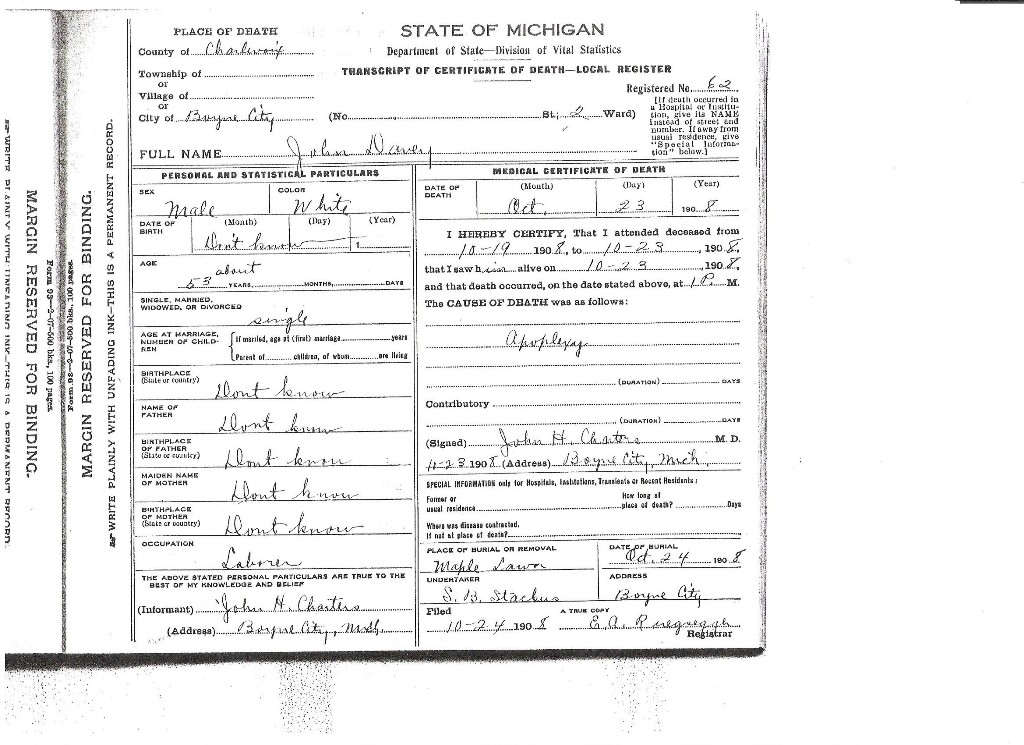 PLACE OF DEATH
County of Charlevoix
Township of
or
Village of
or
City of Boyne City
STATE OF MICHIGAN
Department of State—Division of Vital Statistics
TRANSCRIPT OF CERTIFICATE OF DEATH—LOCAL REGISTER
Registered No. 62
(No. St; 2 Ward)
[If death occurred in
a Hospital or Institu-
tion, give its NAME
instead of street and
number. If away from
usual residence, give
"Special Informa-
tion" below.]
FULL NAME John Davey
PERSONAL AND STATISTICAL PARTICULARS
SEX Male
COLOR White
DATE OF BIRTH (Month) (Day) (Year)
Don't know 1
AGE
about
53 YEARS, MONTHS, DAYS
SINGLE, MARRIED,
WIDOWED, OR DIVORCED
single
AGE AT MARRIAGE,
NUMBER OF CHILD-
REN
If married, age at (first) marriage years
Parent of children, of whom are living
BIRTHPLACE
(State or country)
Dont know
NAME OF
FATHER
Dont know
BIRTHPLACE
OF FATHER
(State or country)
Dont know
MAIDEN NAME
OF MOTHER
Dont know
BIRTHPLACE
OF MOTHER
(State or country)
Dont know
OCCUPATION
Laborer
THE ABOVE STATED PERSONAL PARTICULARS ARE TRUE TO THE
BEST OF MY KNOWLEDGE AND BELIEF
(Informant) John H. Charters
(Address) Boyne City, Mich.
MEDICAL CERTIFICATE OF DEATH
DATE OF DEATH (Month) (Day) (Year)
Oct. 23 1908
I HEREBY CERTIFY, That I attended deceased from
10-19 1908, to 10-23, 1908,
that I saw him alive on 10-23, 1908,
and that death occurred, on the date stated above, at 1 P. M.
The CAUSE OF DEATH was as follows:
Apoplexy
(DURATION) DAYS
Contributory
(DURATION) DAYS
(Signed) John H. Charters M. D.
1908 (Address) Boyne City, Mich.
SPECIAL INFORMATION only for Hospitals, Institutions, Transients or Recent Residents:
Former or
usual residence
How long at
place of death? Days
Where was disease contracted,
If not at place of death?
PLACE OF BURIAL OR REMOVAL
Maple Lawn
DATE OF BURIAL
Oct. 24 1908
UNDERTAKER
S. B. Stackus
ADDRESS
Boyne City
Filed
10-24 1908
A TRUE COPY
E. A.
Registrar
WRITE PLAINLY WITH UNFADING INK—THIS IS A PERMANENT RECORD.
MARGIN RESERVED FOR BINDING.
Form 98—2-07-500 bks., 100 pages
Form 98—2-07-500 bks., 100 pages
MARGIN RESERVED FOR BINDING.
WRITE PLAINLY WITH UNFADING INK—THIS IS A PERMANENT RECORD.